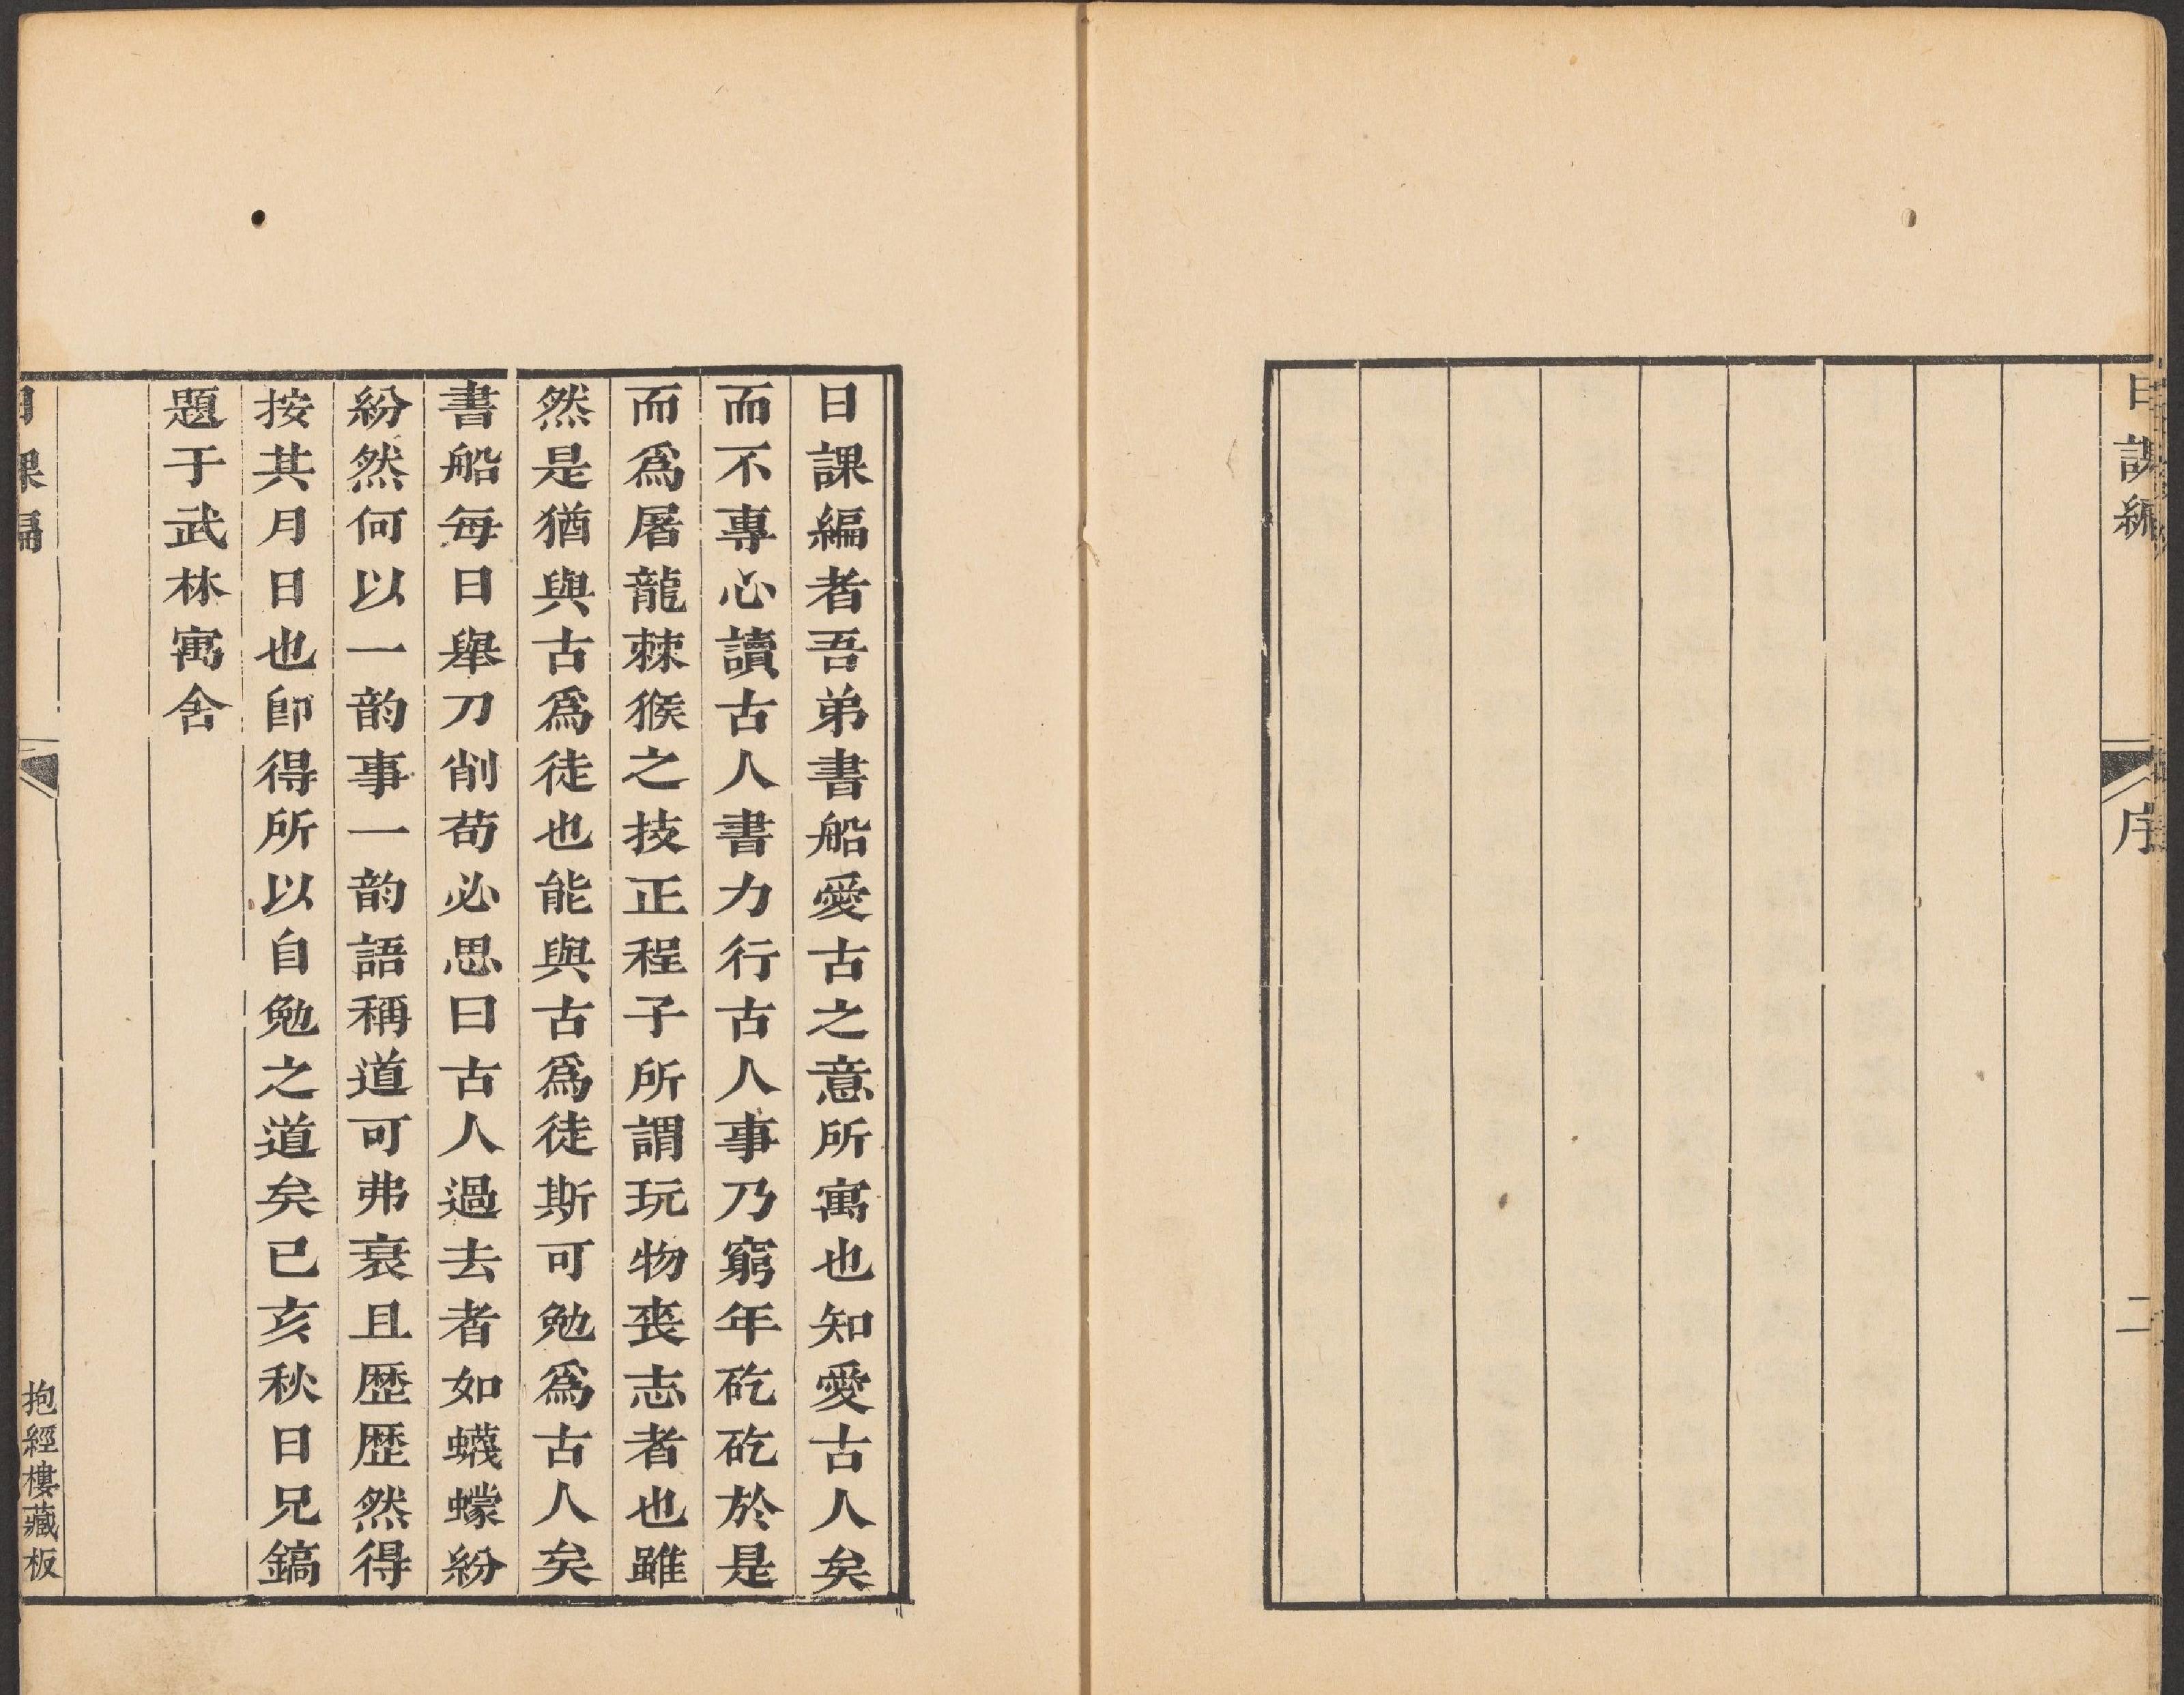 日課編
序
二
日課編者吾弟書船愛古之意所寓也知愛古人矣
而不專心讀古人書力行古人事乃窮年矻矻於是
而爲屠龍棘猴之技正程子所謂玩物喪志者也雖
然是猶與古爲徒也能與古爲徒斯可勉爲古人矣
書船每日舉刀削荀必思曰古人過去者如蠛蠓紛
紛然何以一韵事一韵語稱道可弗衰且歴歴然得
按其月日也卽得所以自勉之道矣已亥秋日兄鎬
題于武林寓舍
日課編
抱經樓藏板